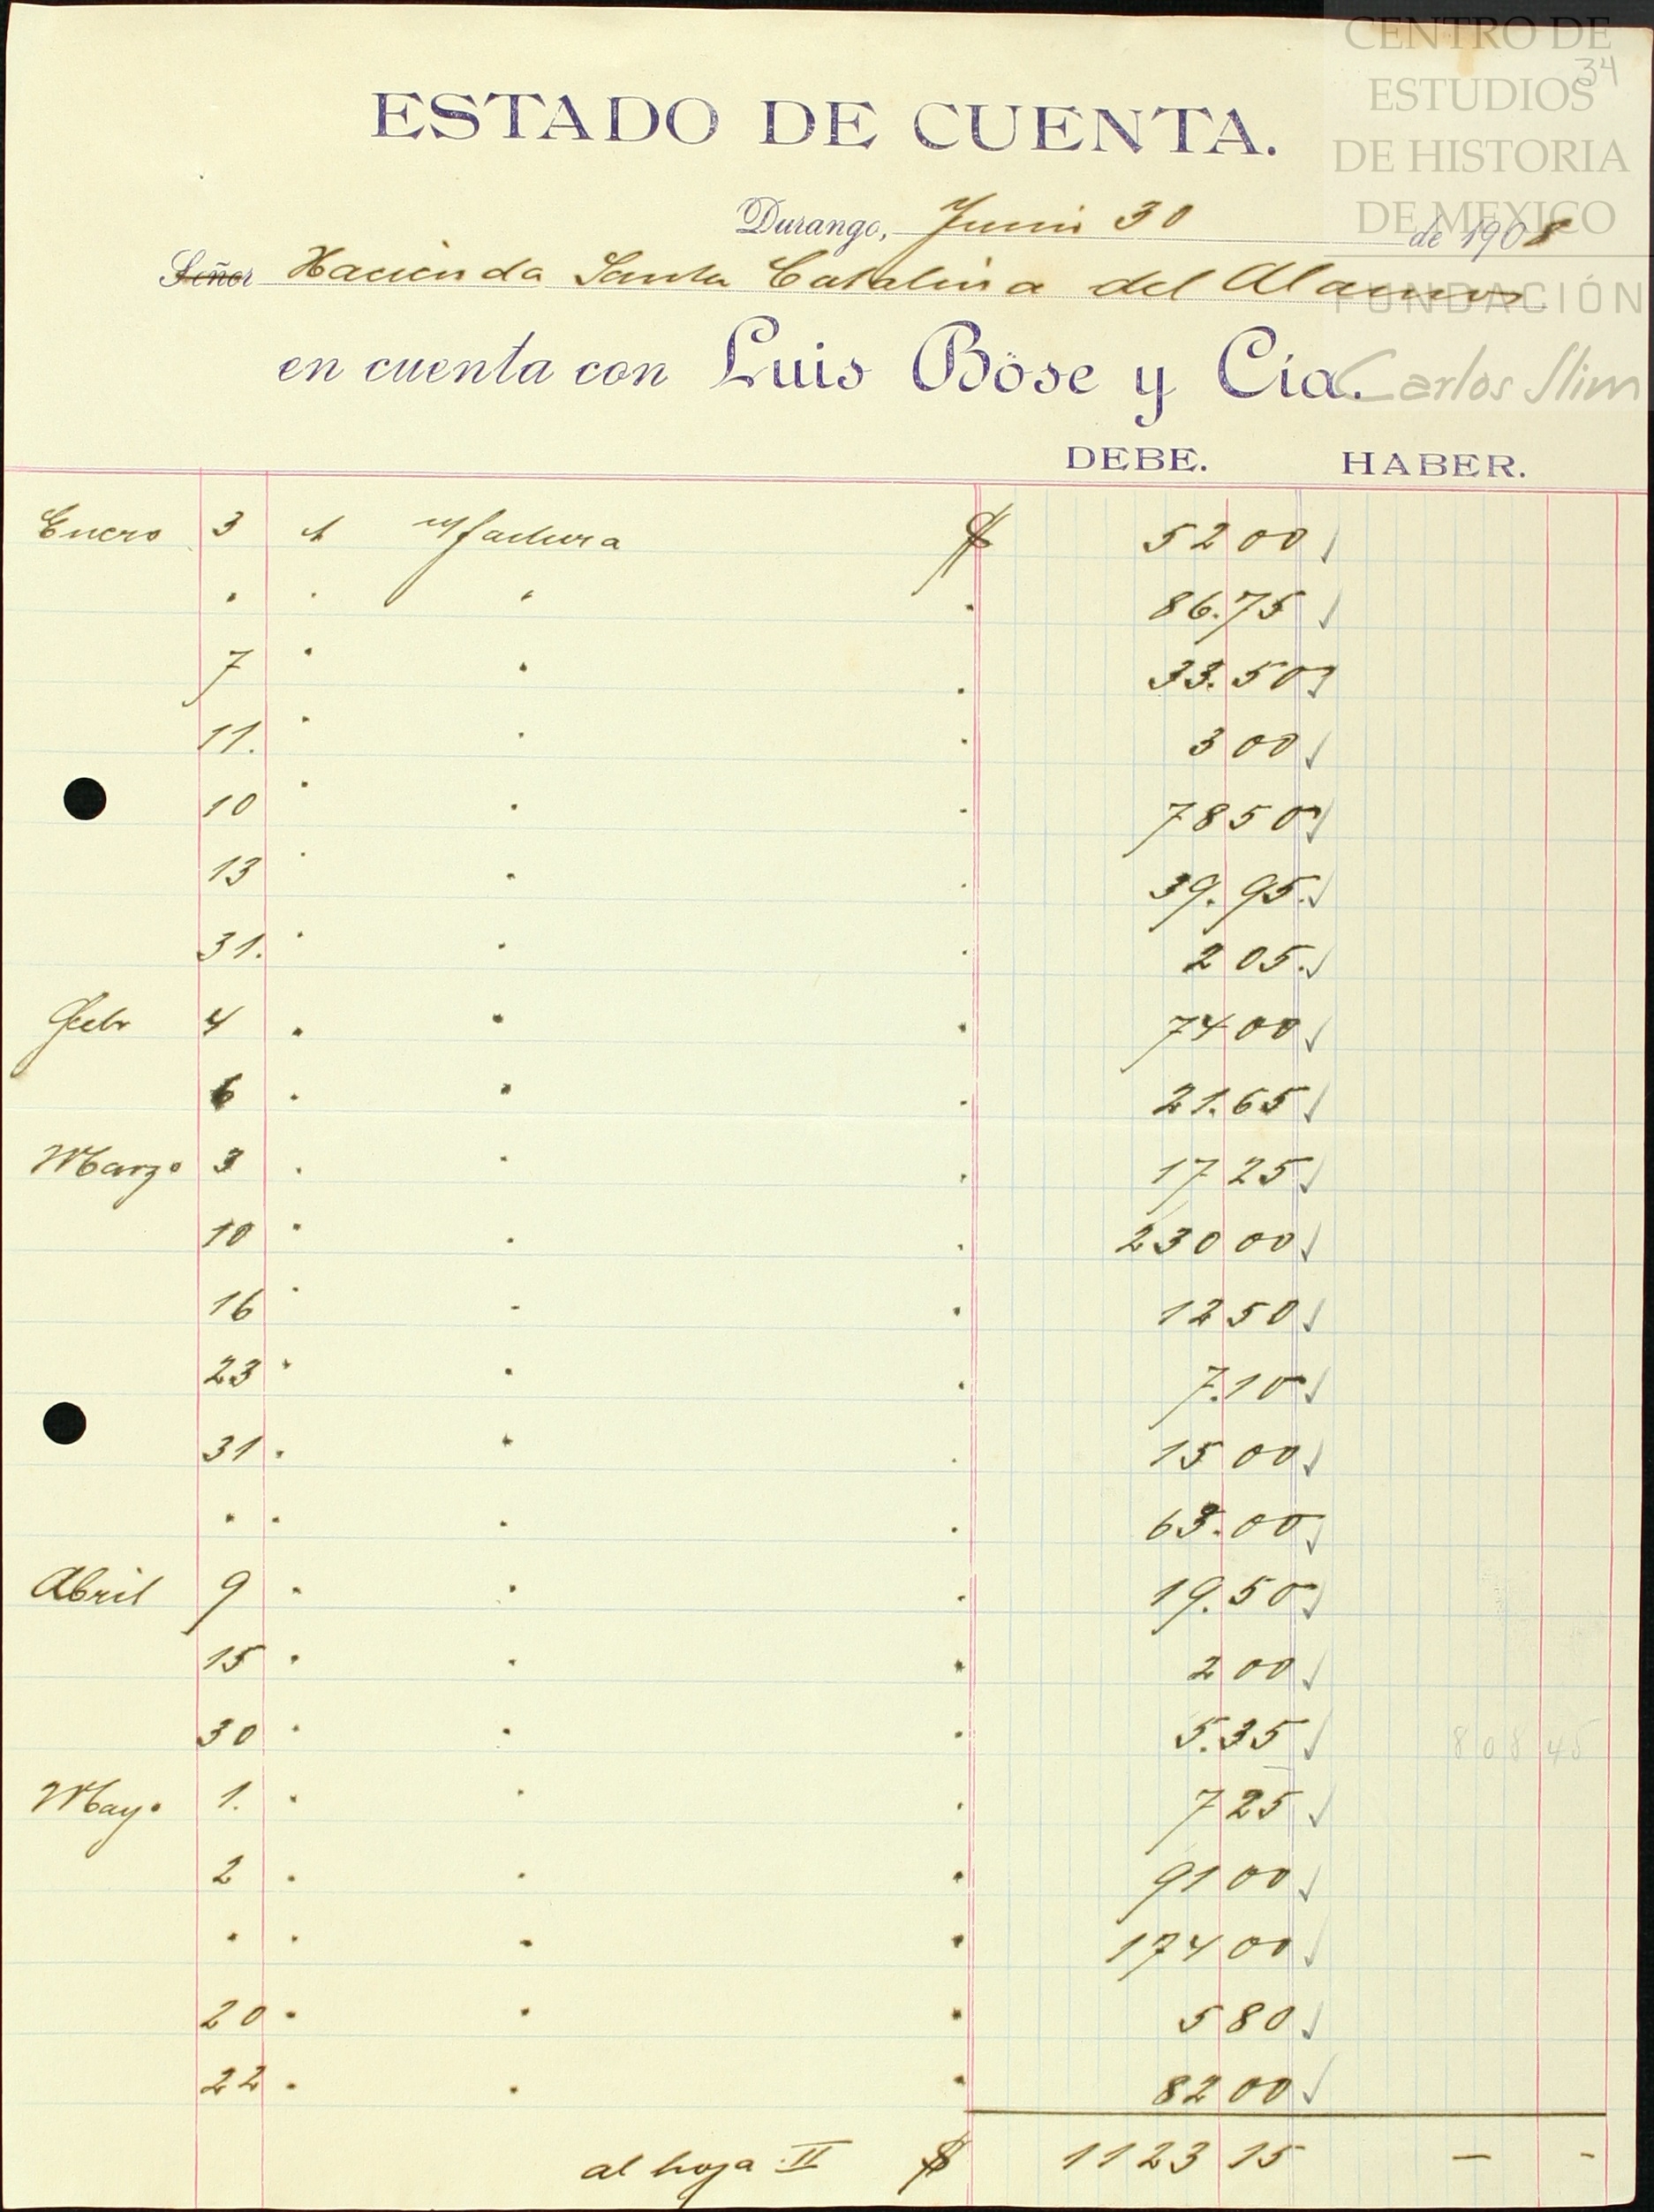 CENTRO DE
34
ESTUDIOS
DE HISTORIA
DE MEXICO
FUNDACIÓN
Carlos Slim
ESTADO DE CUENTA.
Durango, Junio 30 de 1908
Señor Hacienda Santa Catalina del Alamo
en cuenta con Luis Böse y Cía.
DEBE. HABER.
Enero 3 A m/factura $ 52 00 ✓
" " " " 86.75 ✓
7 " " " 33.50 ✓
11. " " " 3 00 ✓
10 " " " 78 50 ✓
13 " " " 39.95. ✓
31. " " " 2 05. ✓
Febr 4 " " " 74 00 ✓
6 " " " 21.65 ✓
Marzo 3 " " " 17 25 ✓
10 " " " 230 00 ✓
16 " " " 12 50 ✓
23 " " " 7.10 ✓
31 " " " 15 00 ✓
" " " " 63.00 ✓
Abril 9 " " " 19.50 ✓
15 " " " 2 00 ✓
30 " " " 5.35 ✓ 808 45
Mayo 1. " " " 7 25 ✓
2 " " " 91 00 ✓
" " " " 174 00 ✓
20 " " " 5 80 ✓
22 " " " 82 00 ✓
al hoja II $ 1123 15 — -